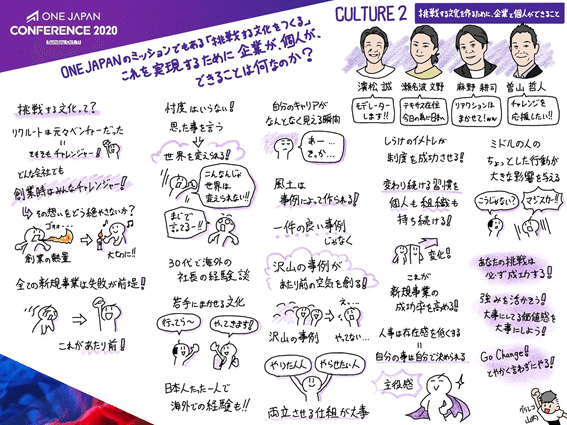 ONE JAPAN
CONFERENCE 2020
Sunday, Oct. 11
ONE JAPANのミッションでもある「挑戦する文化をつくる」
これを実現するために企業が、個人が、
できることは何なのか?
CULTURE 2
挑戦する文化を作るために、企業と個人ができること
濱松 誠
瀬名波 文野
麻野 耕司
曽山 哲人
モデレーター
します!!
テキサス在住
今日の為に日本へ
リアクションは
まかせて!ww
チャレンジを
応援したい!!
挑戦する文化って?
リクルートは元々ベンチャーだった
そもそもチャレンジャー!
どんな会社でも
創業時はみんなチャレンジャー!
その想いをどう絶やさないか?
創業の熱量
大切に!!
全ての新規事業は失敗が前提!
これがあたり前!
忖度はいらない!
思った事を言う
世界を変えられる!
こんなんじゃ
世界は
変えられない!!
まじで
言ってる…!!
30代で海外の
社長の経験談
若手にまかせる文化
行ってら〜
やってきます!
日本人たった一人で
海外での経験も!!
自分のキャリアが
なんとなく見える瞬間
あー…
きっか…
風土は
事例によって作られる!
一件の良い事例
じゃなく
沢山の事例が
あたり前の空気を創る!
え…
沢山の事例
やってない…
やりたい人
やらせたい人
両立させる仕組が大事
しらけのイメトレが
制度を成功させる!
変わり続ける習慣を
個人も組織も
持ち続ける!
変化!
これが
新規事業の
成功率を高める!
人事は存在感を低くする
自分の事は自分で決められる
主役感
ミドルの人の
ちょっとした行動が
大きな影響を与える
こうじゃない?
マジスカ…!!
あなたの挑戦は
必ず成功する!
強みを活かそう!
大事にしてる価値感を
大事にしよう!
Go Change!
とやかく言わずにやる!
グラレコ
山内